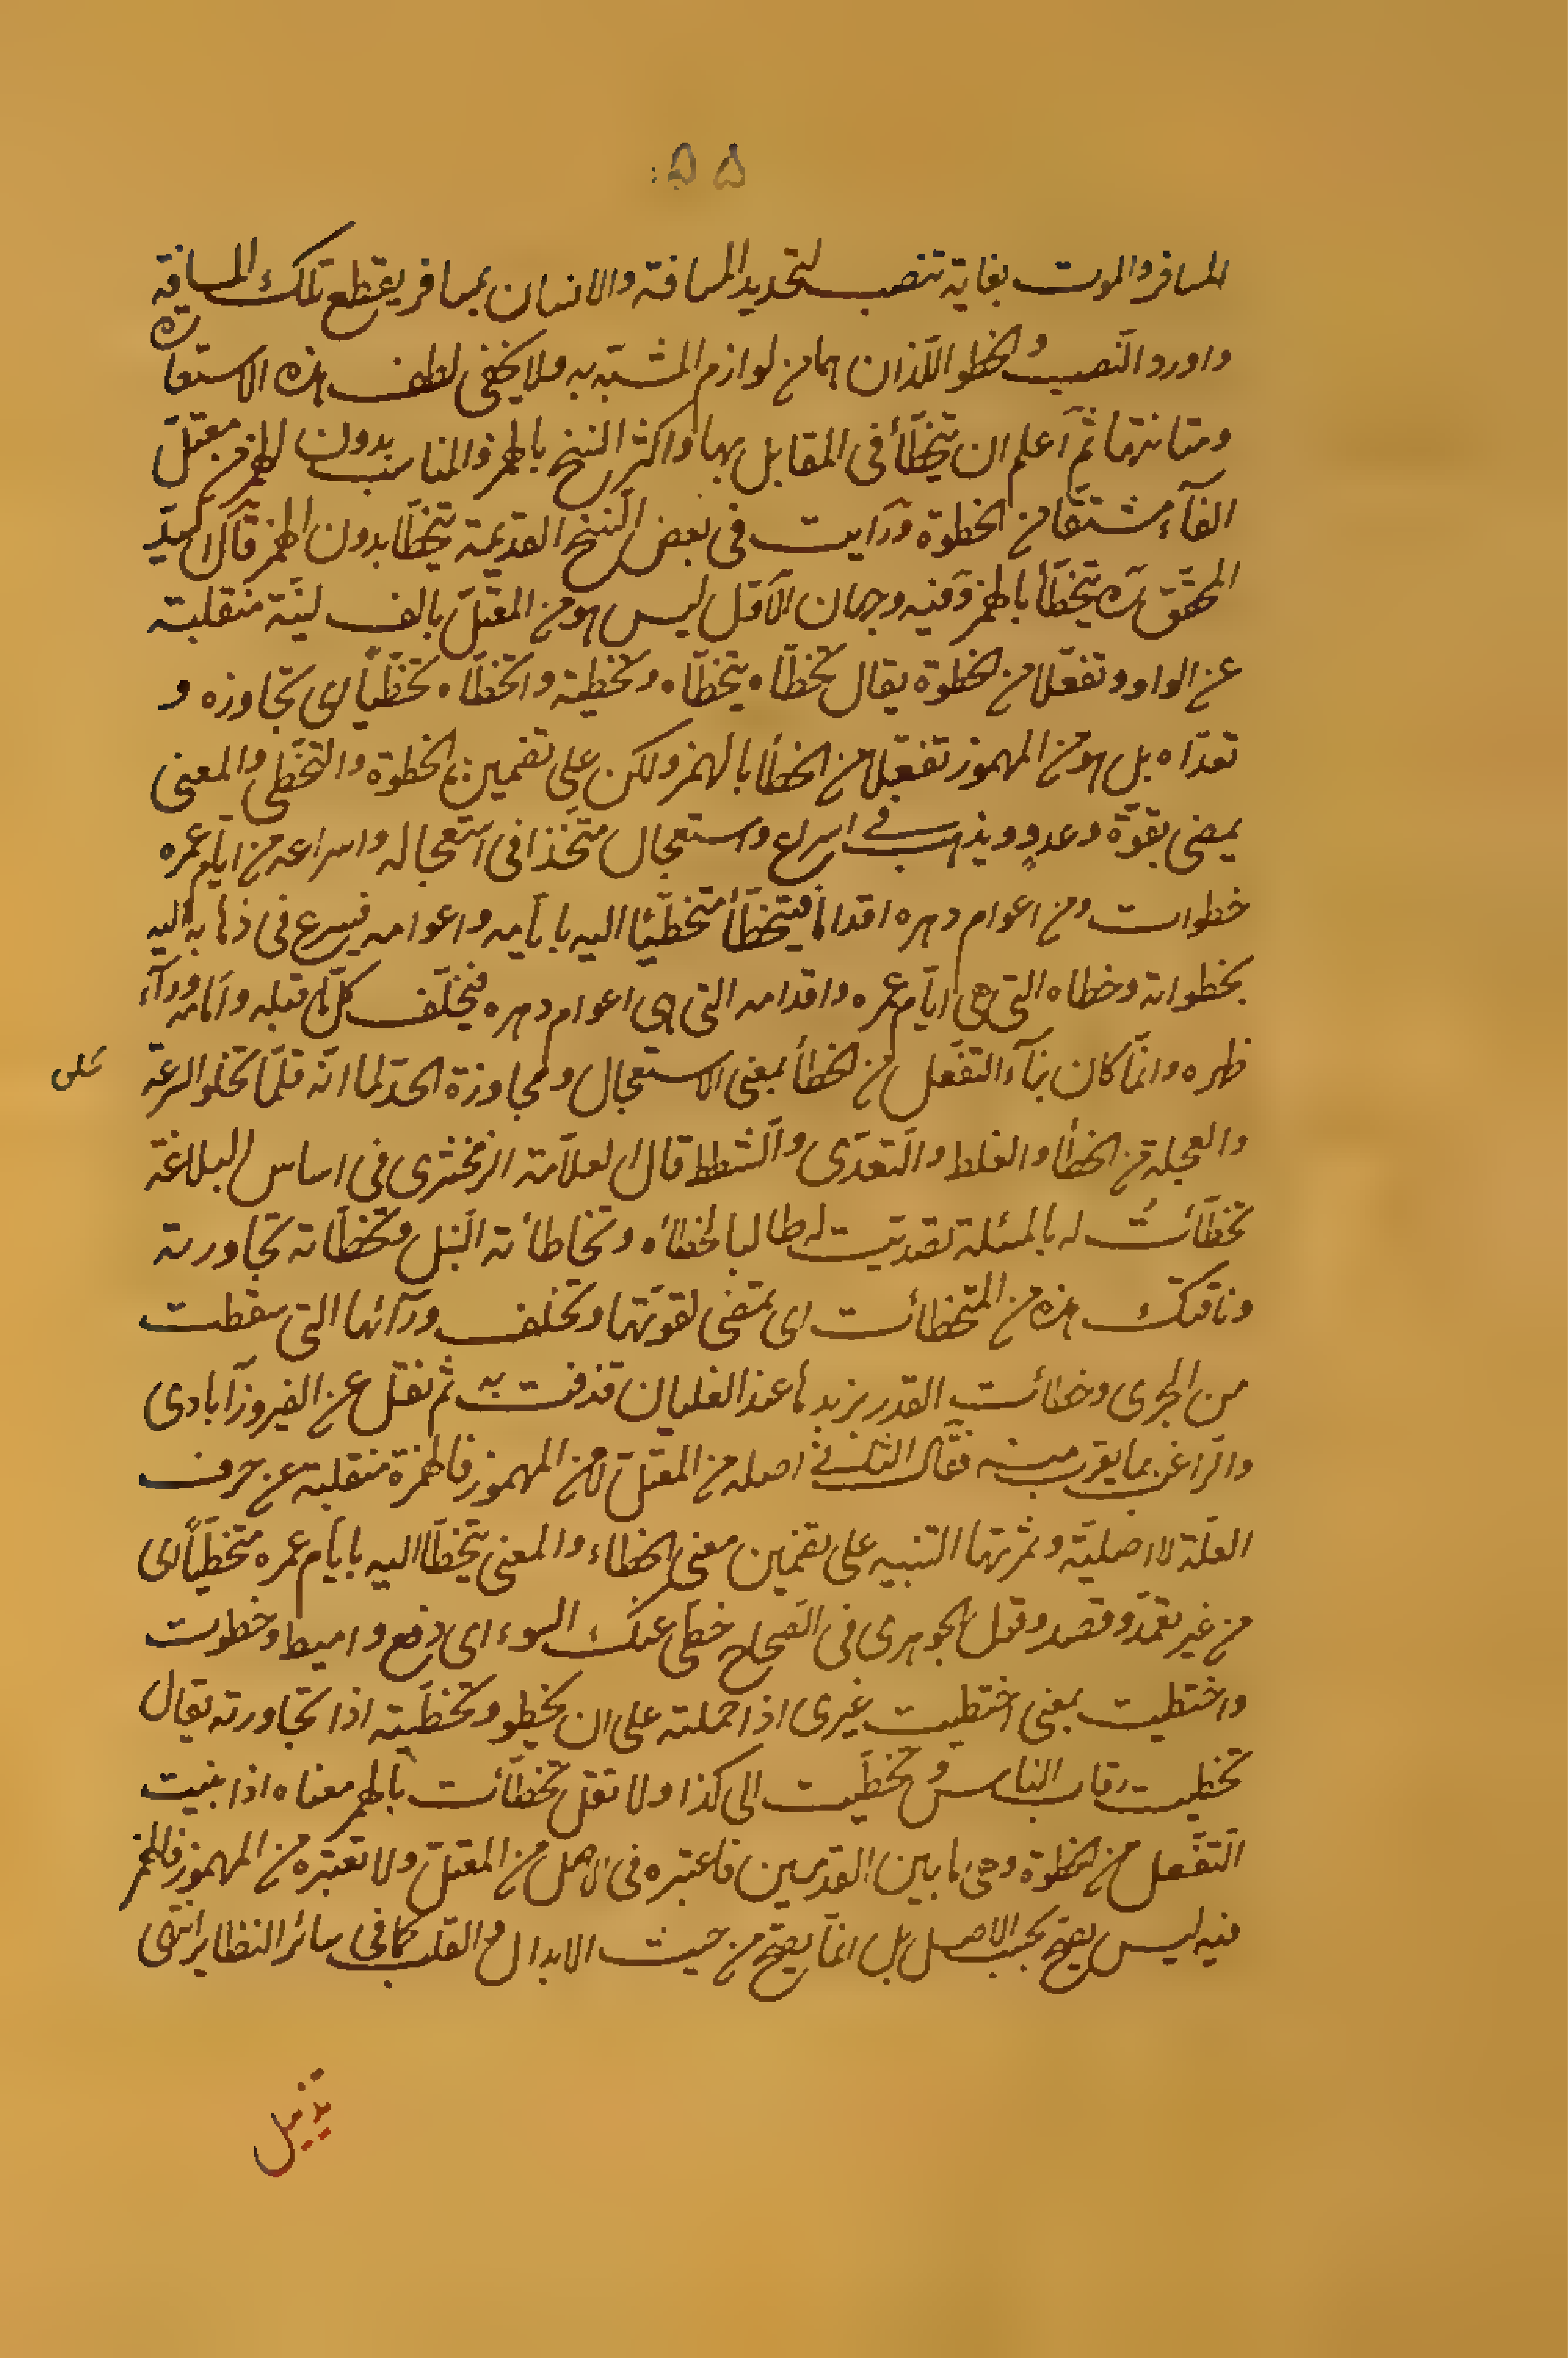 ۵۵:
المسافر والموت بغاية تنصب لتحديد المسافة والانسان بمسافر يقطع تلك المسافة
واورد النصب والخطو اللّذان هما من لوازم المشبّه به ولا يخفى لطف هذه الاستعارة
ومتانتها ثمّ اعلم ان يتخطّأ فى المقابل بهما واكثر النسخ بالهمز والمناسب بدون الهمز من معتلّ
الفآء مشتقا من الخطوة ورايت فى بعض النسخ القديمة يتخطّا بدون الهمز قال السيّد
المحقّق ره يتخطّأ بالهمز وفيه وجهان الاوّل ليس هو من المعتلّ بالف ليّنة منقلبة
عن الواو وتفعّلا من الخطوة يقال تخطّاه يتخطّاه وتخطيته واتخطّاه تخطّياً اى تجاوزه و
تعدّاه بل هو من المهموز تفعّلا من الخطأ بالهمز ولكن على تضمين الخطوة والتخطّى والمعنى
يمضى بقوّة وعدو ويذهب فى اسراع واستعجال متّخذا فى استعجاله واسراعه من ايّام عمره
خطوات ومن اعوام دهره اقداما فيتخطّأ متخطّئا اليه بايّامه واعوامه فيسرع فى ذهابه اليه
بخطواته وخطاه التى هى ايّام عمره واقدامه التى هى اعوام دهره فيخلّف كلّ ما قبله وامامه ورآء
ظهره وانّما كان بنآء التفعّل من الخطأ بمعنى الاستعجال ومجاوزة الحدّ لما انّه قلّما تخلو السرعة
والعجلة من الخطأ والغلط والتعدّى والشطط قال العلاّمة الزمخشرى فى اساس البلاغة
تخطّأتُ له بالمسئلة تصدّيت له طالبا لخطائه وتخاطأته النبل وتخطّاته تجاوزته
وناقتك هذه من المتخطّأت اى تمضى لقوّتها وتخلف ورآئها التى سقطت
من الجرى وخطائت القدر بزبدها عند الغليان قذفت به ثم نقل عن الفيروزآبادى
والراغب بما يقرب منه فقال الثانى اصله من المعتلّ لا من المهموز فالهمزة منقلبة عن حرف
العلّة لا اصليّة وثمرتها التنبيه على تضمين معنى الخطاء والمعنى يتخطّا اليه بايّام عمره متخطّياً اى
من غير تعمّد وقصد وقول الجوهرى فى الصّحاح خطى عنك السوء اى دفع واميط وخطوت
واختطيت بمعنى اختطيت غيرى اذا حملته على ان يخطو وتخطّيته اذا تجاوزته يقال
تخطيت رقاب الناس وتخطّيت الى كذا ولا تقل تخطّأت بالهمز معناه اذا بنيت
التفّعل من الخطوة وهى ما بين القدمين فاعتبره فى الاصل من المعتلّ ولا تعتبره من المهموز فالهمز
فيه ليس يصحّ بحسب الاصل بل انّما يصحّ من حيث الابدال والقلب كما فى سائر النظاير انتهى
تذييل